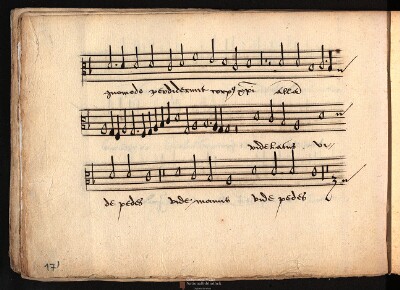 quomodo perdiderunt corpus xpi alla
vide latus vi-
de pedes vide manus vide pedes
17